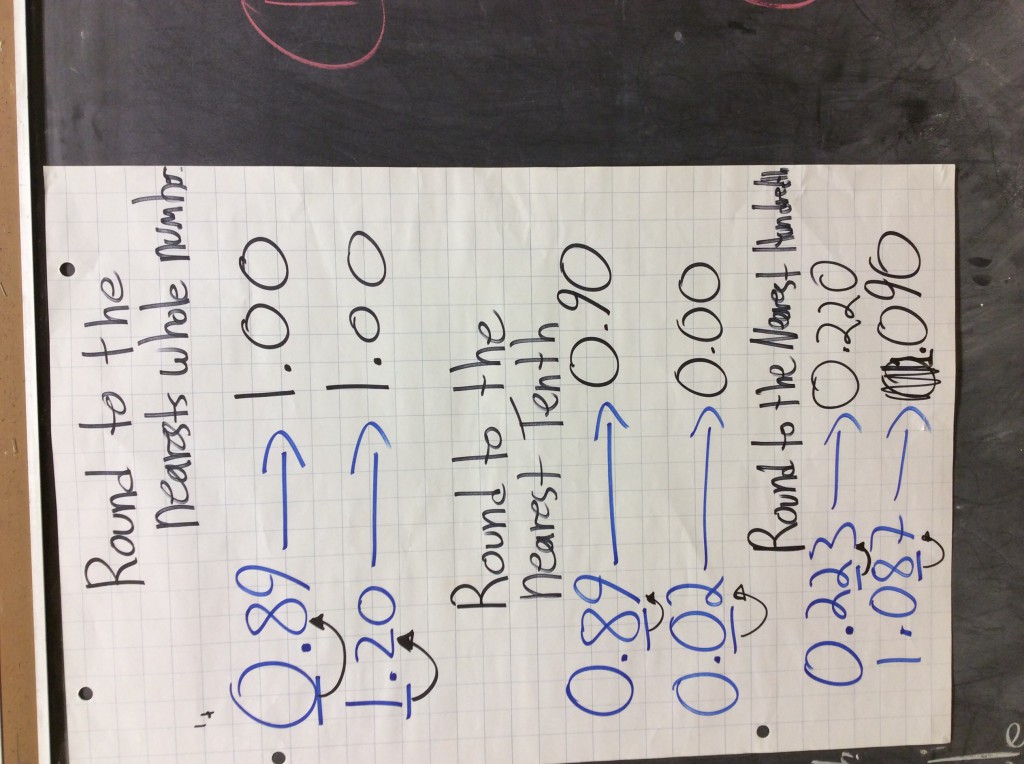 Round to the
nearests whole number.
1+
0.89 → 1.00
1.20 → 1.00
Round to the
nearest Tenth
0.89 → 0.90
0.02 → 0.00
Round to the Nearest Hundredth
0.223 → 0.220
1.087 → .090